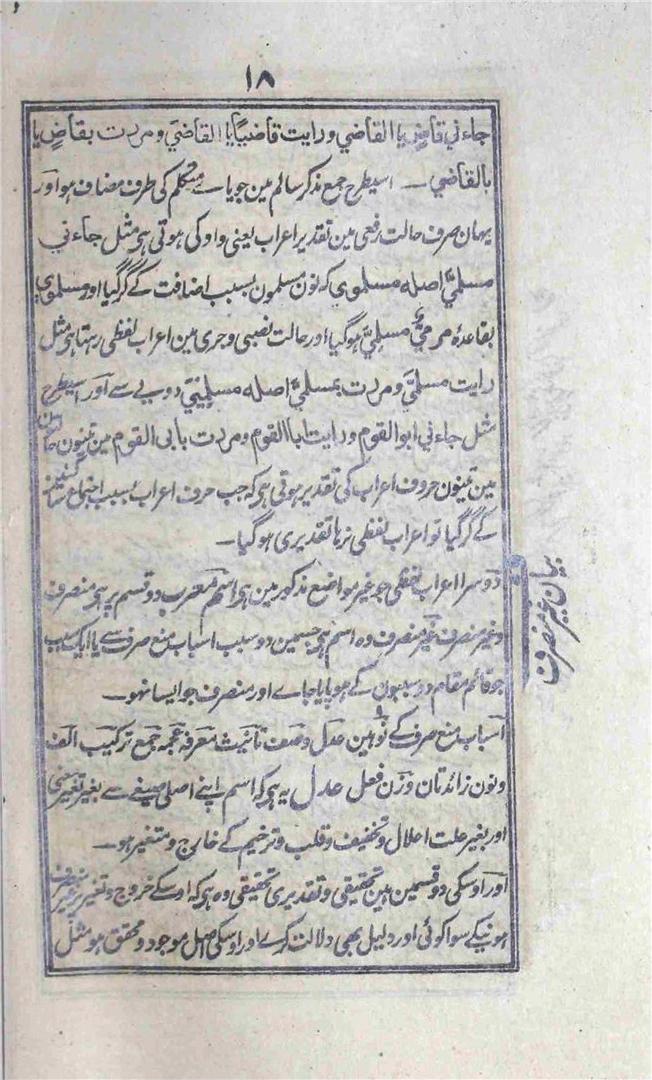 ۱۸
جاءني قاضٍ یا القاضي و رایت قاضیًا یا القاضيَ و مررت بقاضٍ یا
بالقاضي ۔ اسیطرح جمع مذکر سالم مین جو یاے متکلم کی طرف مضاف ہو اور
یہان صرف حالت رفعی مین تقدیر اعراب یعنی واو کی ہوتی ہی مثل جاءني
مسلميَّ اصله مسلموي کہ نون مسلمون بسبب اضافت کے گر گیا اور مسلموي
بقاعدۂ مرميّ مسلميَّ ہو گیا اور حالت نصبی و جری مین اعراب لفظی رہتا ہی مثل
رایت مسلميَّ و مررت بمسلميَّ اصله مسلمیني دو یے سے اور اسیطرح
مثل جاءني ابو القوم و رایت ابا القوم و مررت بابی القوم مین تینون حالتون
مین تینون حروف اعراب کی تقدیر ہوتی ہی کہ جب حرف اعراب بسبب اجتماع ساکنین
کے گر گیا تو اعراب لفظی نرہا تقدیری ہو گیا ۔
دوسرا اعراب لفظی جو غیر مواضع مذکور مین ہی اسم معرب دو قسم پر ہی منصرف
و غیر منصرف غیر منصرف وہ اسم ہی جسمین دو سبب اسباب منع صرف سے یا ایک سبب
جو قائم مقام دو سببون کے ہو پایا جاے اور منصرف جو ایسا نہو ۔
بیان غیر منصرف
اسباب منع صرف کے نو ہین عدل وصف تانیث معرفہ عجمہ جمع ترکیب الف
و نون زائدتان وزن فعل عدل یہ ہی کہ اسم اپنے اصلی صیغے سے بغیر تغیر معنی
اور بغیر علت اعلال و تخفیف و قلب و ترخیم کے خارج و متغیر ہو ۔
اور اوسکی دو قسمین ہین تحقیقی و تقدیری تحقیقی وہ ہی کہ اوسکے خروج و تغیر پر غیر منصرف
ہونیکے سوا کوئی اور دلیل بھی دلالت کرے اور اوسکی اصل موجود و محقق ہو مثل